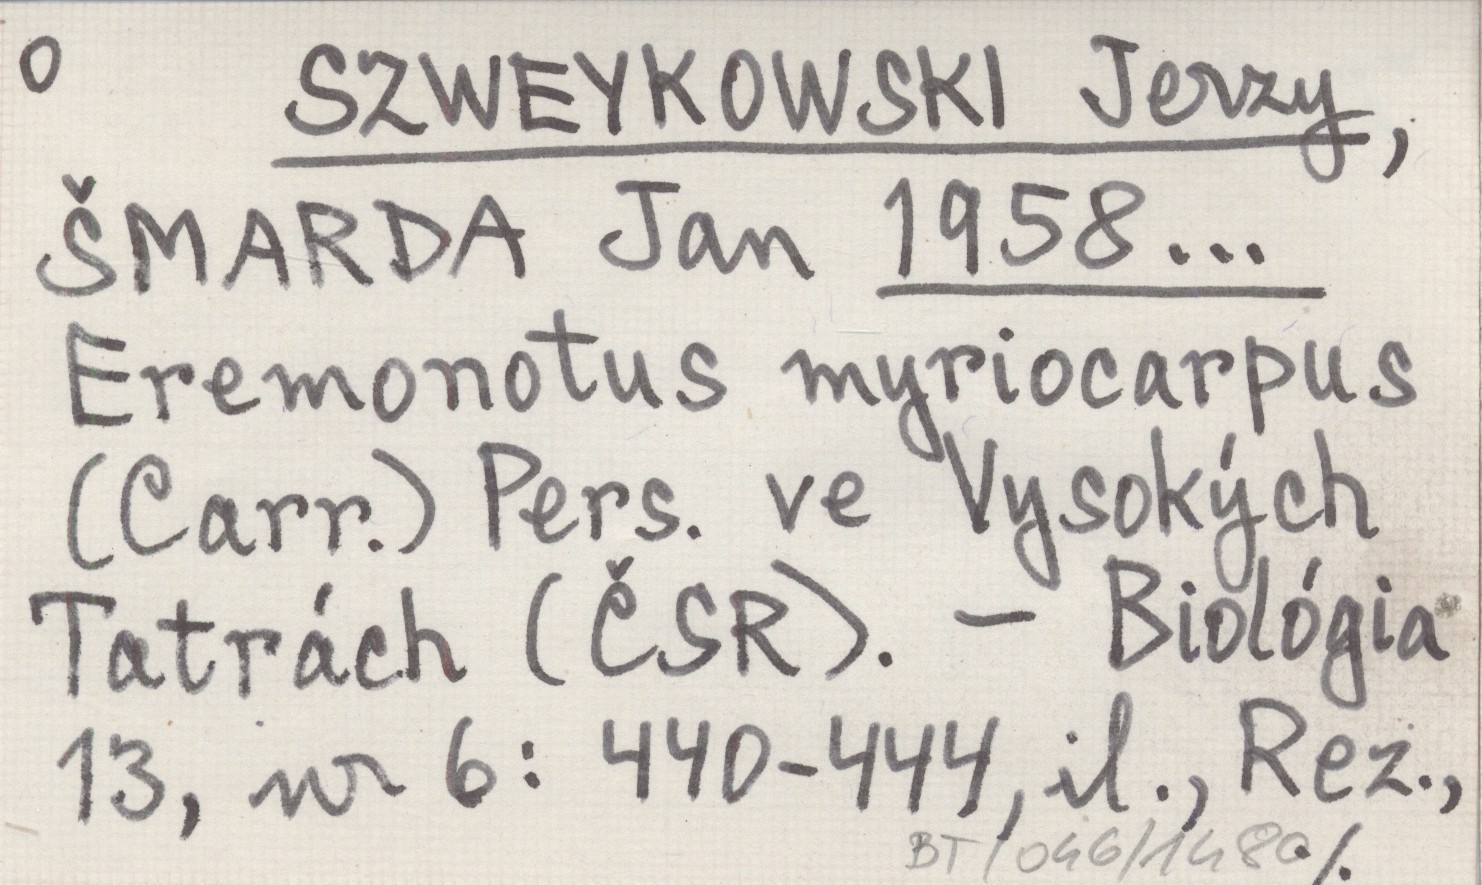 o SZWEYKOWSKI Jerzy,
ŠMARDA Jan 1958...
Eremonotus myriocarpus
(Carr.) Pers. ve Vysokých
Tatrách (ČSR). – Biológia
13, nr 6: 440-444, il., Rez.,
BT/046/1480 /.